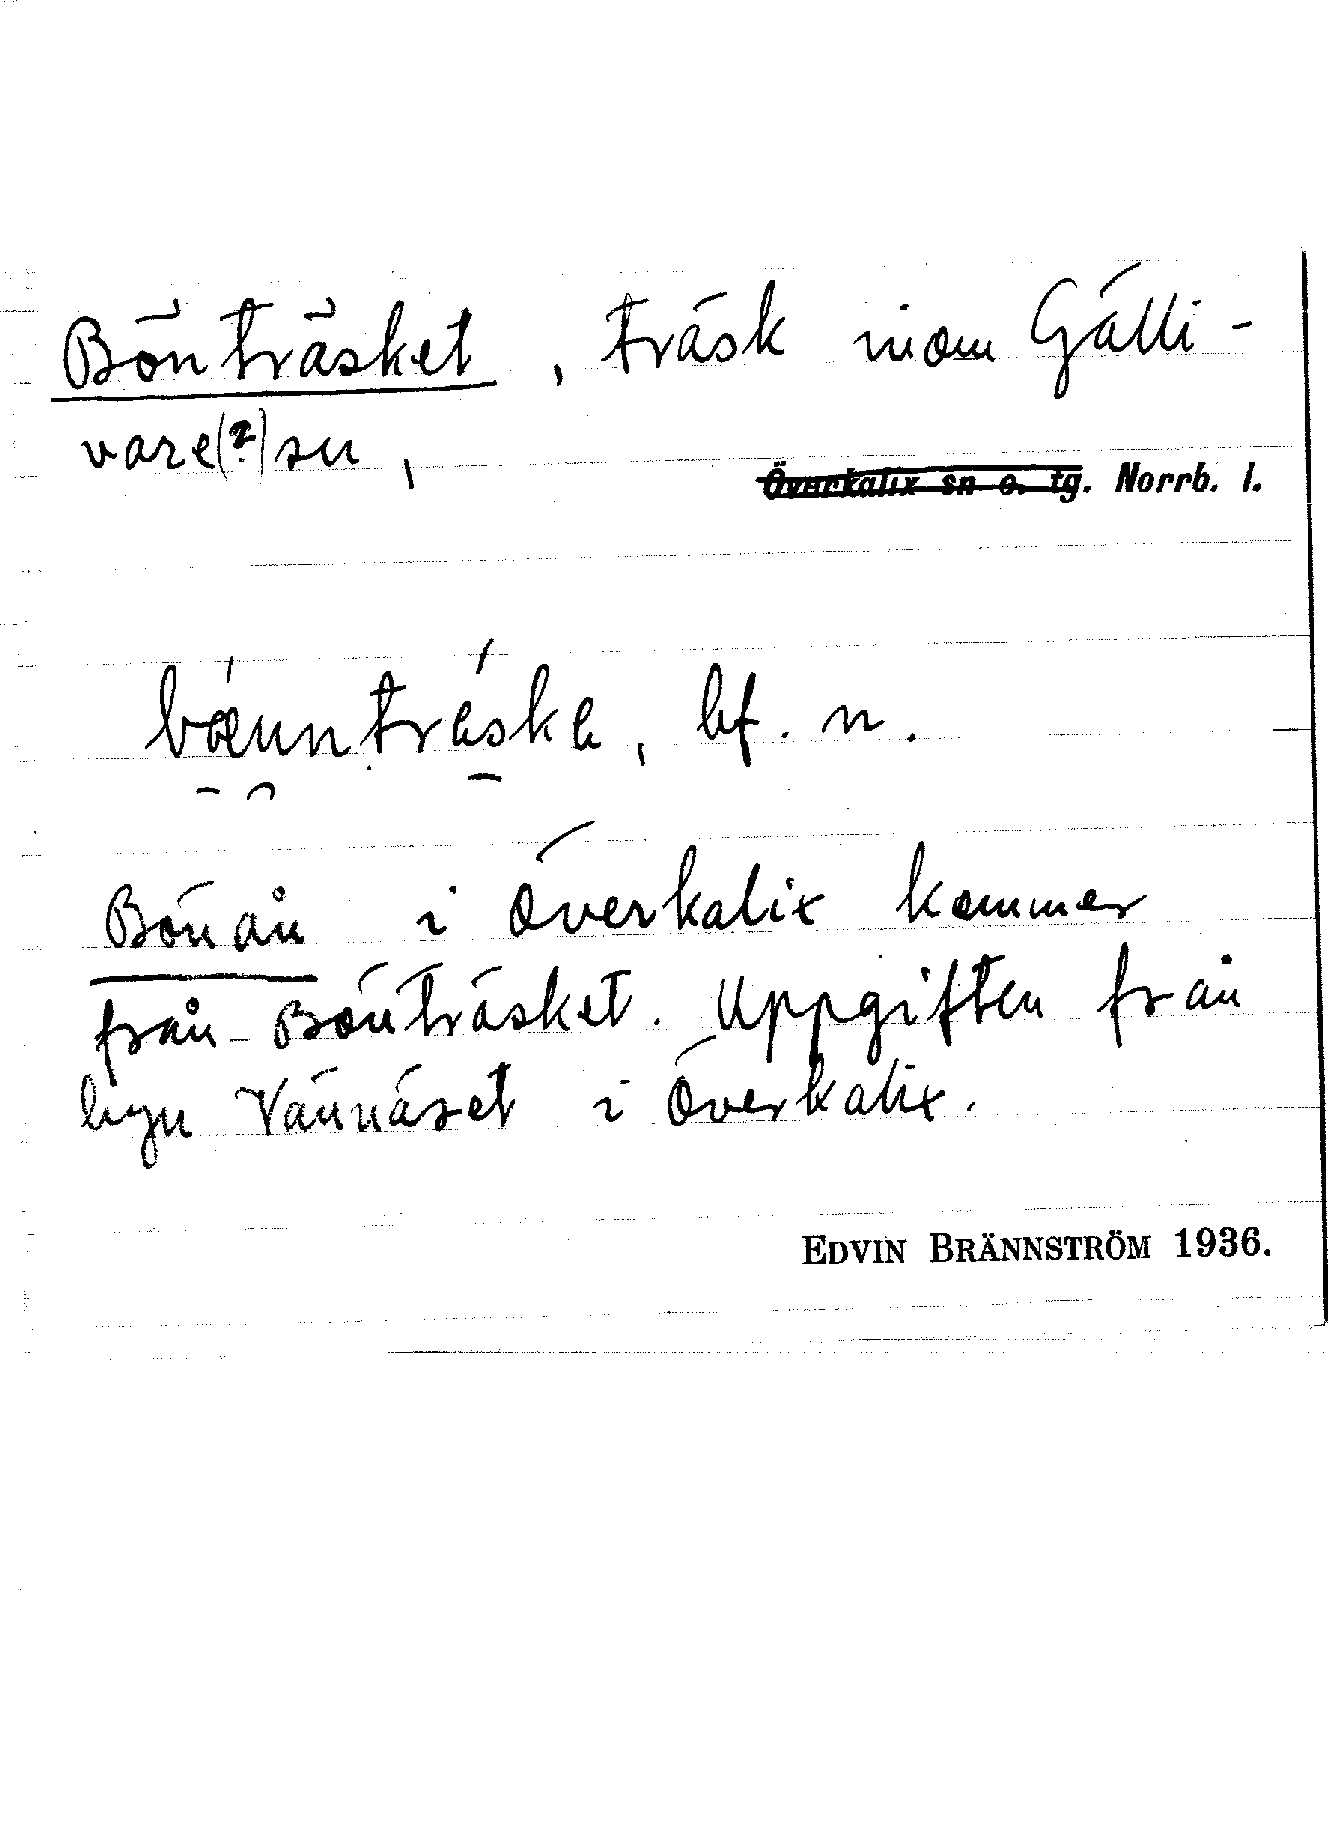 Bönträsket, träsk inom Gälli-
vare(?) sn,
Överkalix sn o. tg. Norrb. l.
bœunträske, bf. n.
Bönån i Överkalix kommer
från Bönträsket. Uppgiften från
byn Vännäset i Överkalix.
EDVIN BRÄNNSTRÖM 1936.